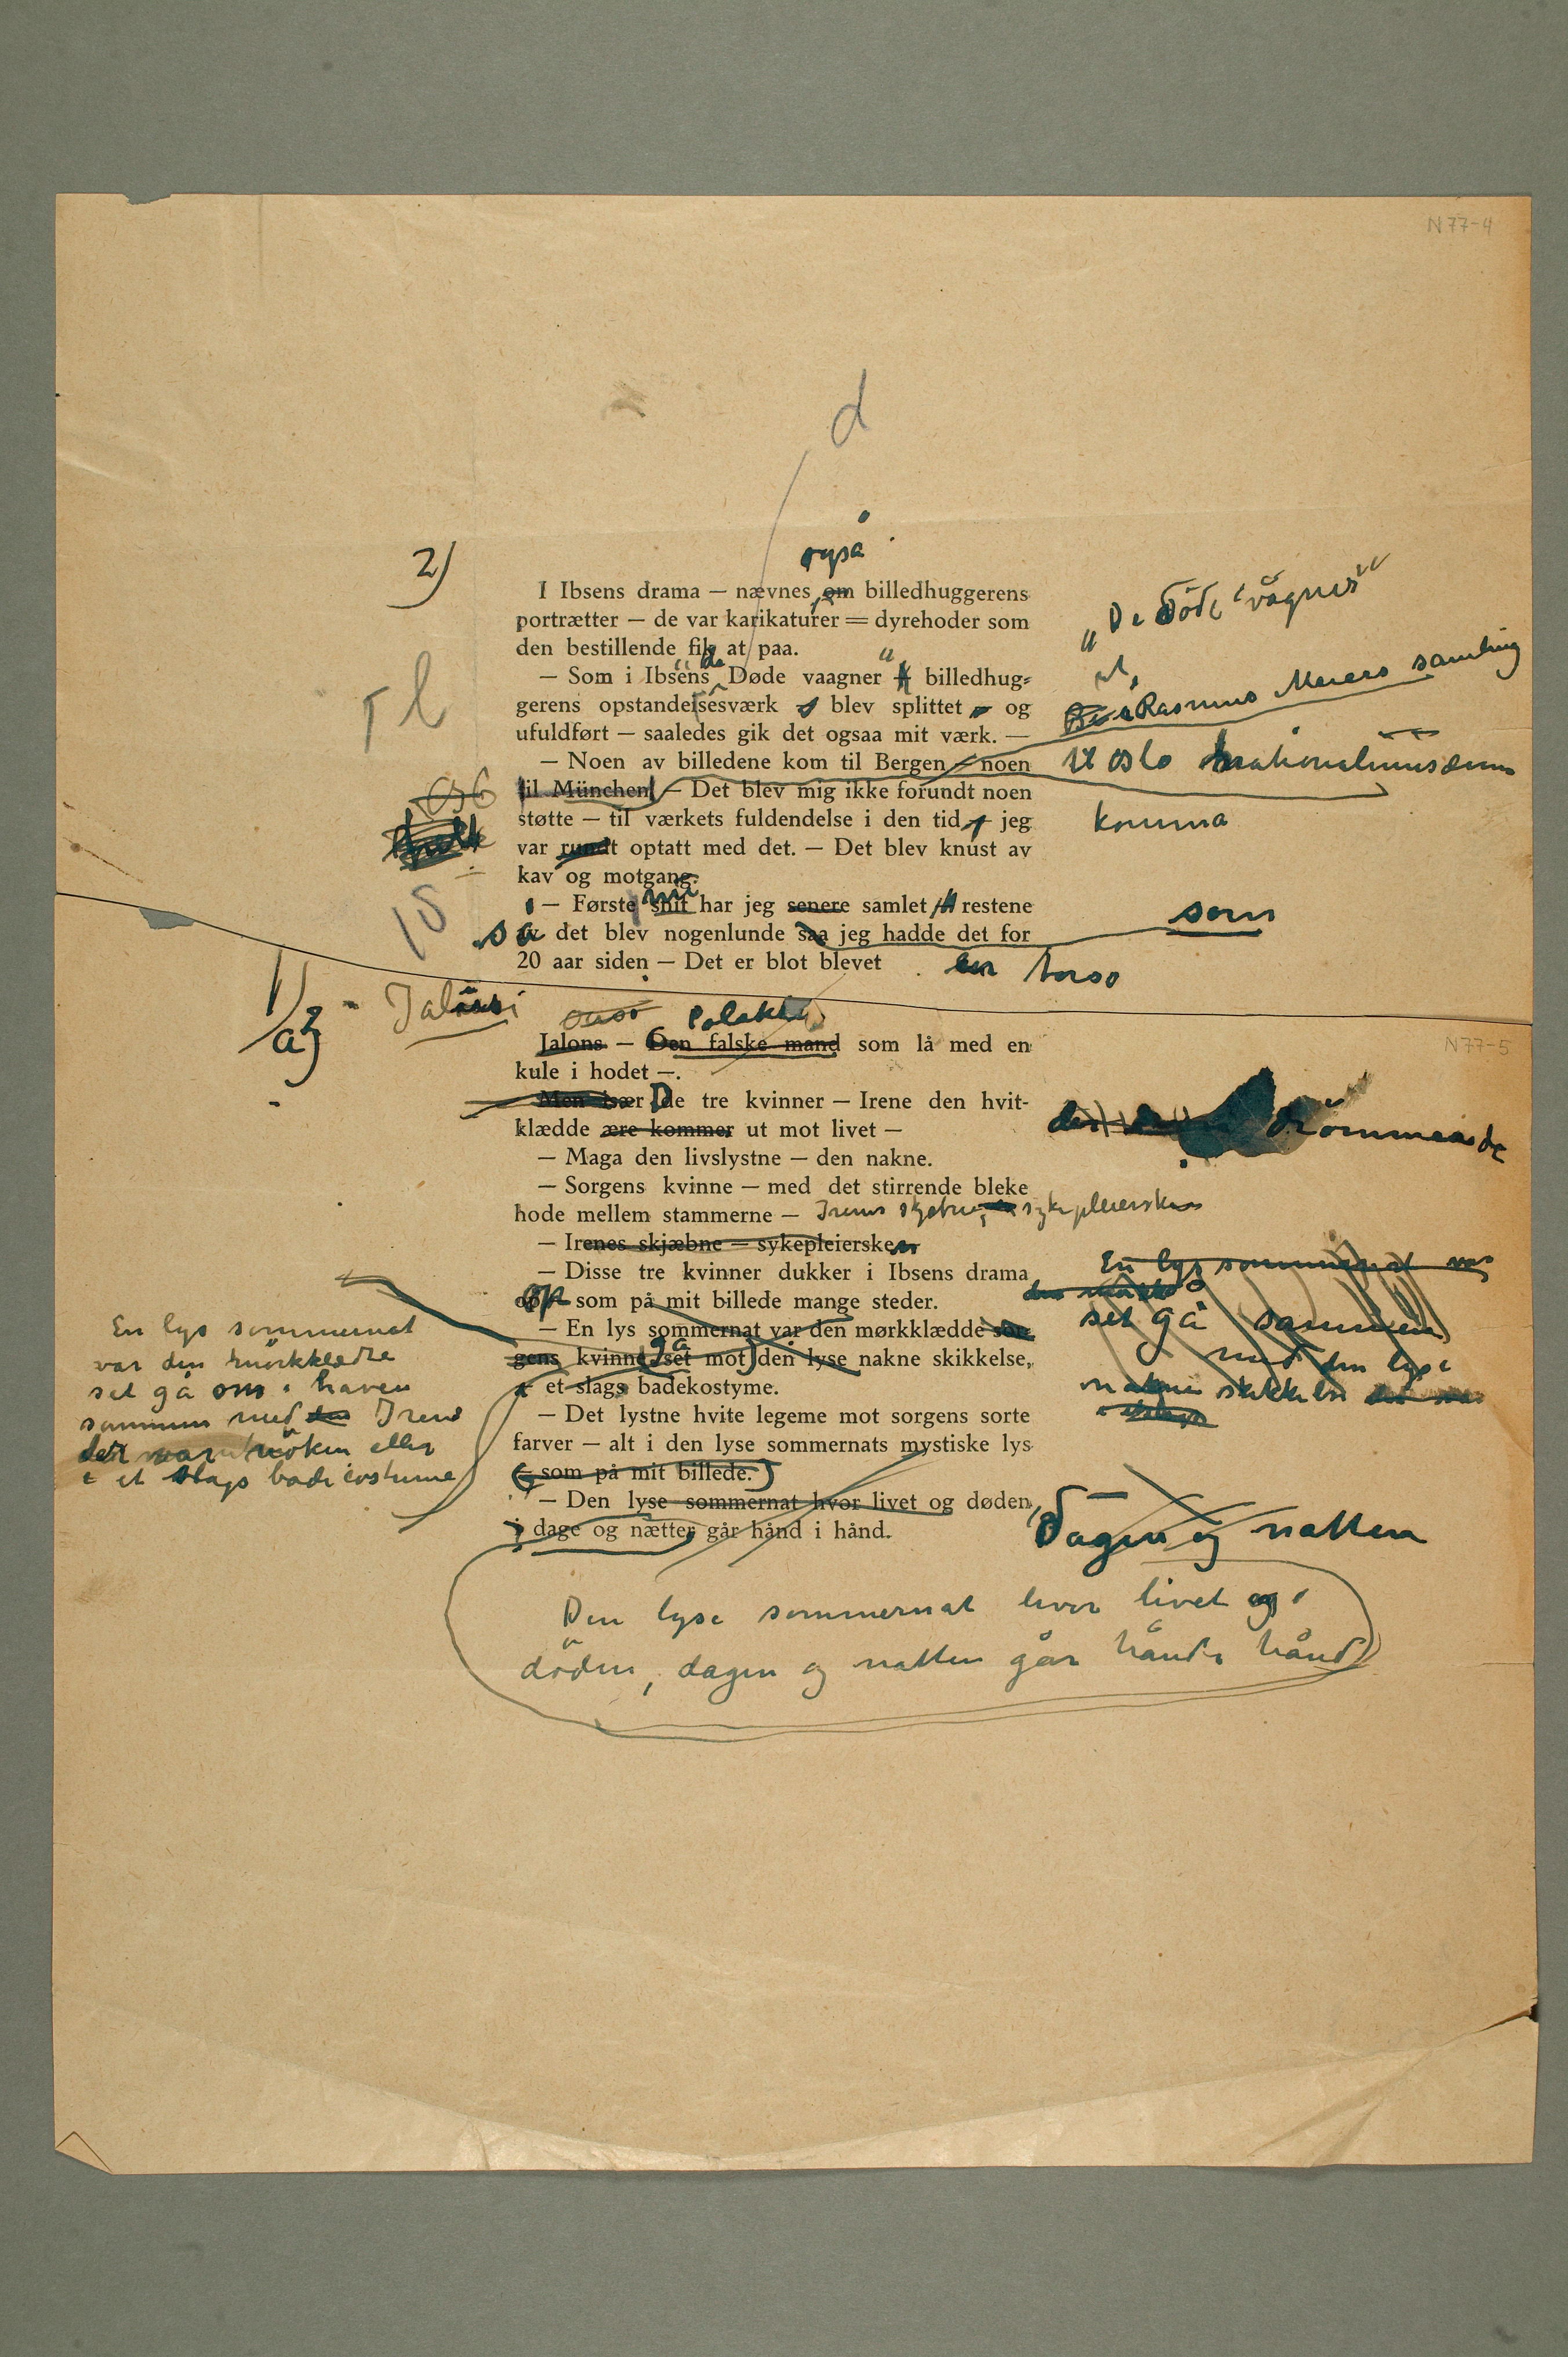 N 77-4
d
også
2)
I Ibsens drama — nævnes, om billedhuggerens
portrætter — de var karikaturer = dyrehoder som
den bestillende fik at paa.
„De Döde vågner"
— Som i Ibsens „de Døde vaagner" billedhug-
gerens opstandelsesværk blev splittet og
ufuldført — saaledes gik det ogsaa mit værk. —
Rasmus Meiers samling
T l
— Noen av billedene kom til Bergen — noen
til München — Det blev mig ikke forundt noen
til Oslo
støtte — til værkets fuldendelse i den tid jeg
komma
var rundt optatt med det. — Det blev knust av
kav og motgang.
— Første nu snit har jeg senere samlet restene
som
så av det blev nogenlunde saa jeg hadde det for
20 aar siden — Det er blot blevet en torso
1)
a2)
N 77-5
Jalousi
Jalons — Den falske mand som lå med en
kule i hodet —.
Men især De tre kvinner — Irene den hvit-
klædde ære kommer ut mot livet —
drömmende
— Maga den livslystne — den nakne.
— Sorgens kvinne — med det stirrende bleke
hode mellem stammerne — Irenes skjebne, sykepleiersken
— Irenes skjæbne — sykepleiersken
— Disse tre kvinner dukker i Ibsens drama
op som på mit billede mange steder.
— En lys sommernat var den mørkklædde sor-
gens kvinne gå set mot den lyse nakne skikkelse,
i et slags badekostyme.
En lys sommernat var
den
set gå sammen
med den lyse
nakne skikkelse
i et slags
En lys sommernat
var den mörkklædte
set gå om i haven
sammen med den Irene
der var nöken eller
i et slags badecostume
— Det lystne hvite legeme mot sorgens sorte
farver — alt i den lyse sommernats mystiske lys
— som på mit billede.
— Den lyse sommernat hvor livet og døden
i dage og nætter går hånd i hånd.
Dagen og natten
Den lyse sommernat hvor livet og
döden, dagen og natten går hånd i hånd